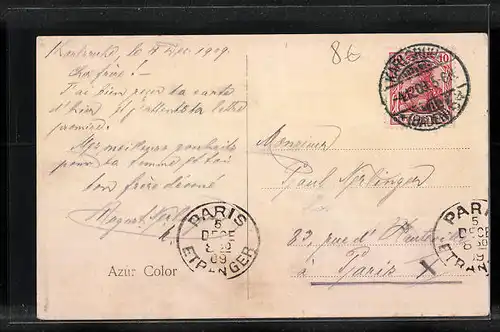 Karlsruhe, le 4 Dec. 1909.
86
10
Cher frère! –
J'ai bien reçu ta carte
d'hier et j'attends ta lettre
promise.
Mes meilleurs souhaits
pour ta femme et toi
ton frère dévoué
Monsieur
Paul Nerlinger
83, rue d'
à Paris
PARIS
5
DECE
09
ETRANGER
PARIS
5
DECE
ETRANGER
(BADEN)
Azur Color